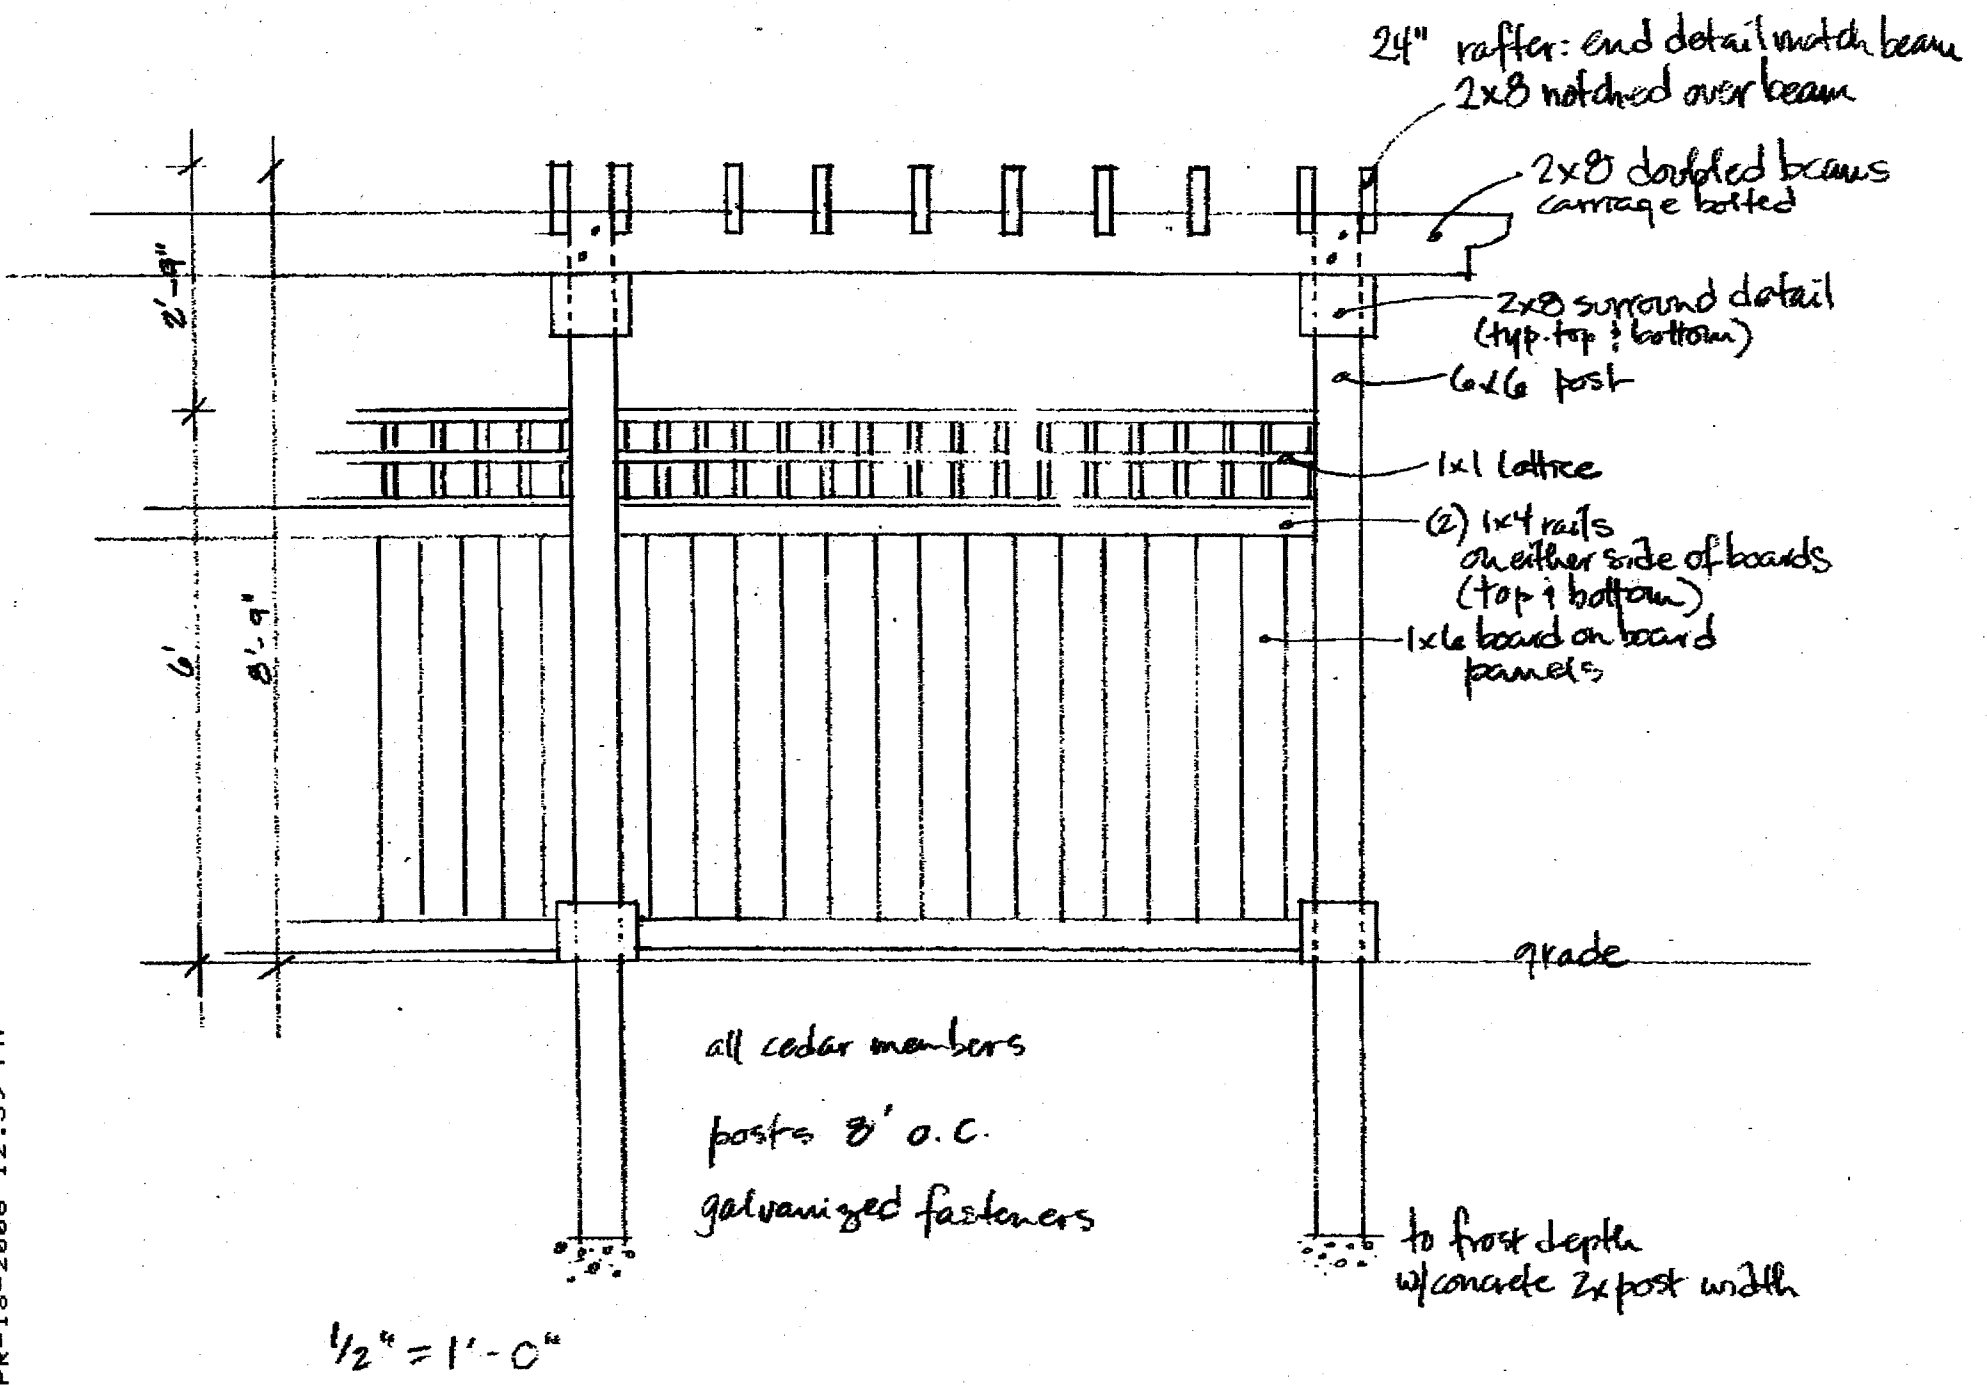 24" rafter: end detail match beam
2x8 notched over beam
2x8 doubled beams
carriage bolted
2x8 surround detail
(typ. top & bottom)
6x6 post
1x1 lattice
(2) 1x4 rails
on either side of boards
(top & bottom)
1x6 board on board
panels
2'-9"
6'
8'-9"
grade
all cedar members
posts 8' o.c.
galvanized fasteners
to frost depth
w/concrete 2x post width
1/2" = 1'-0"